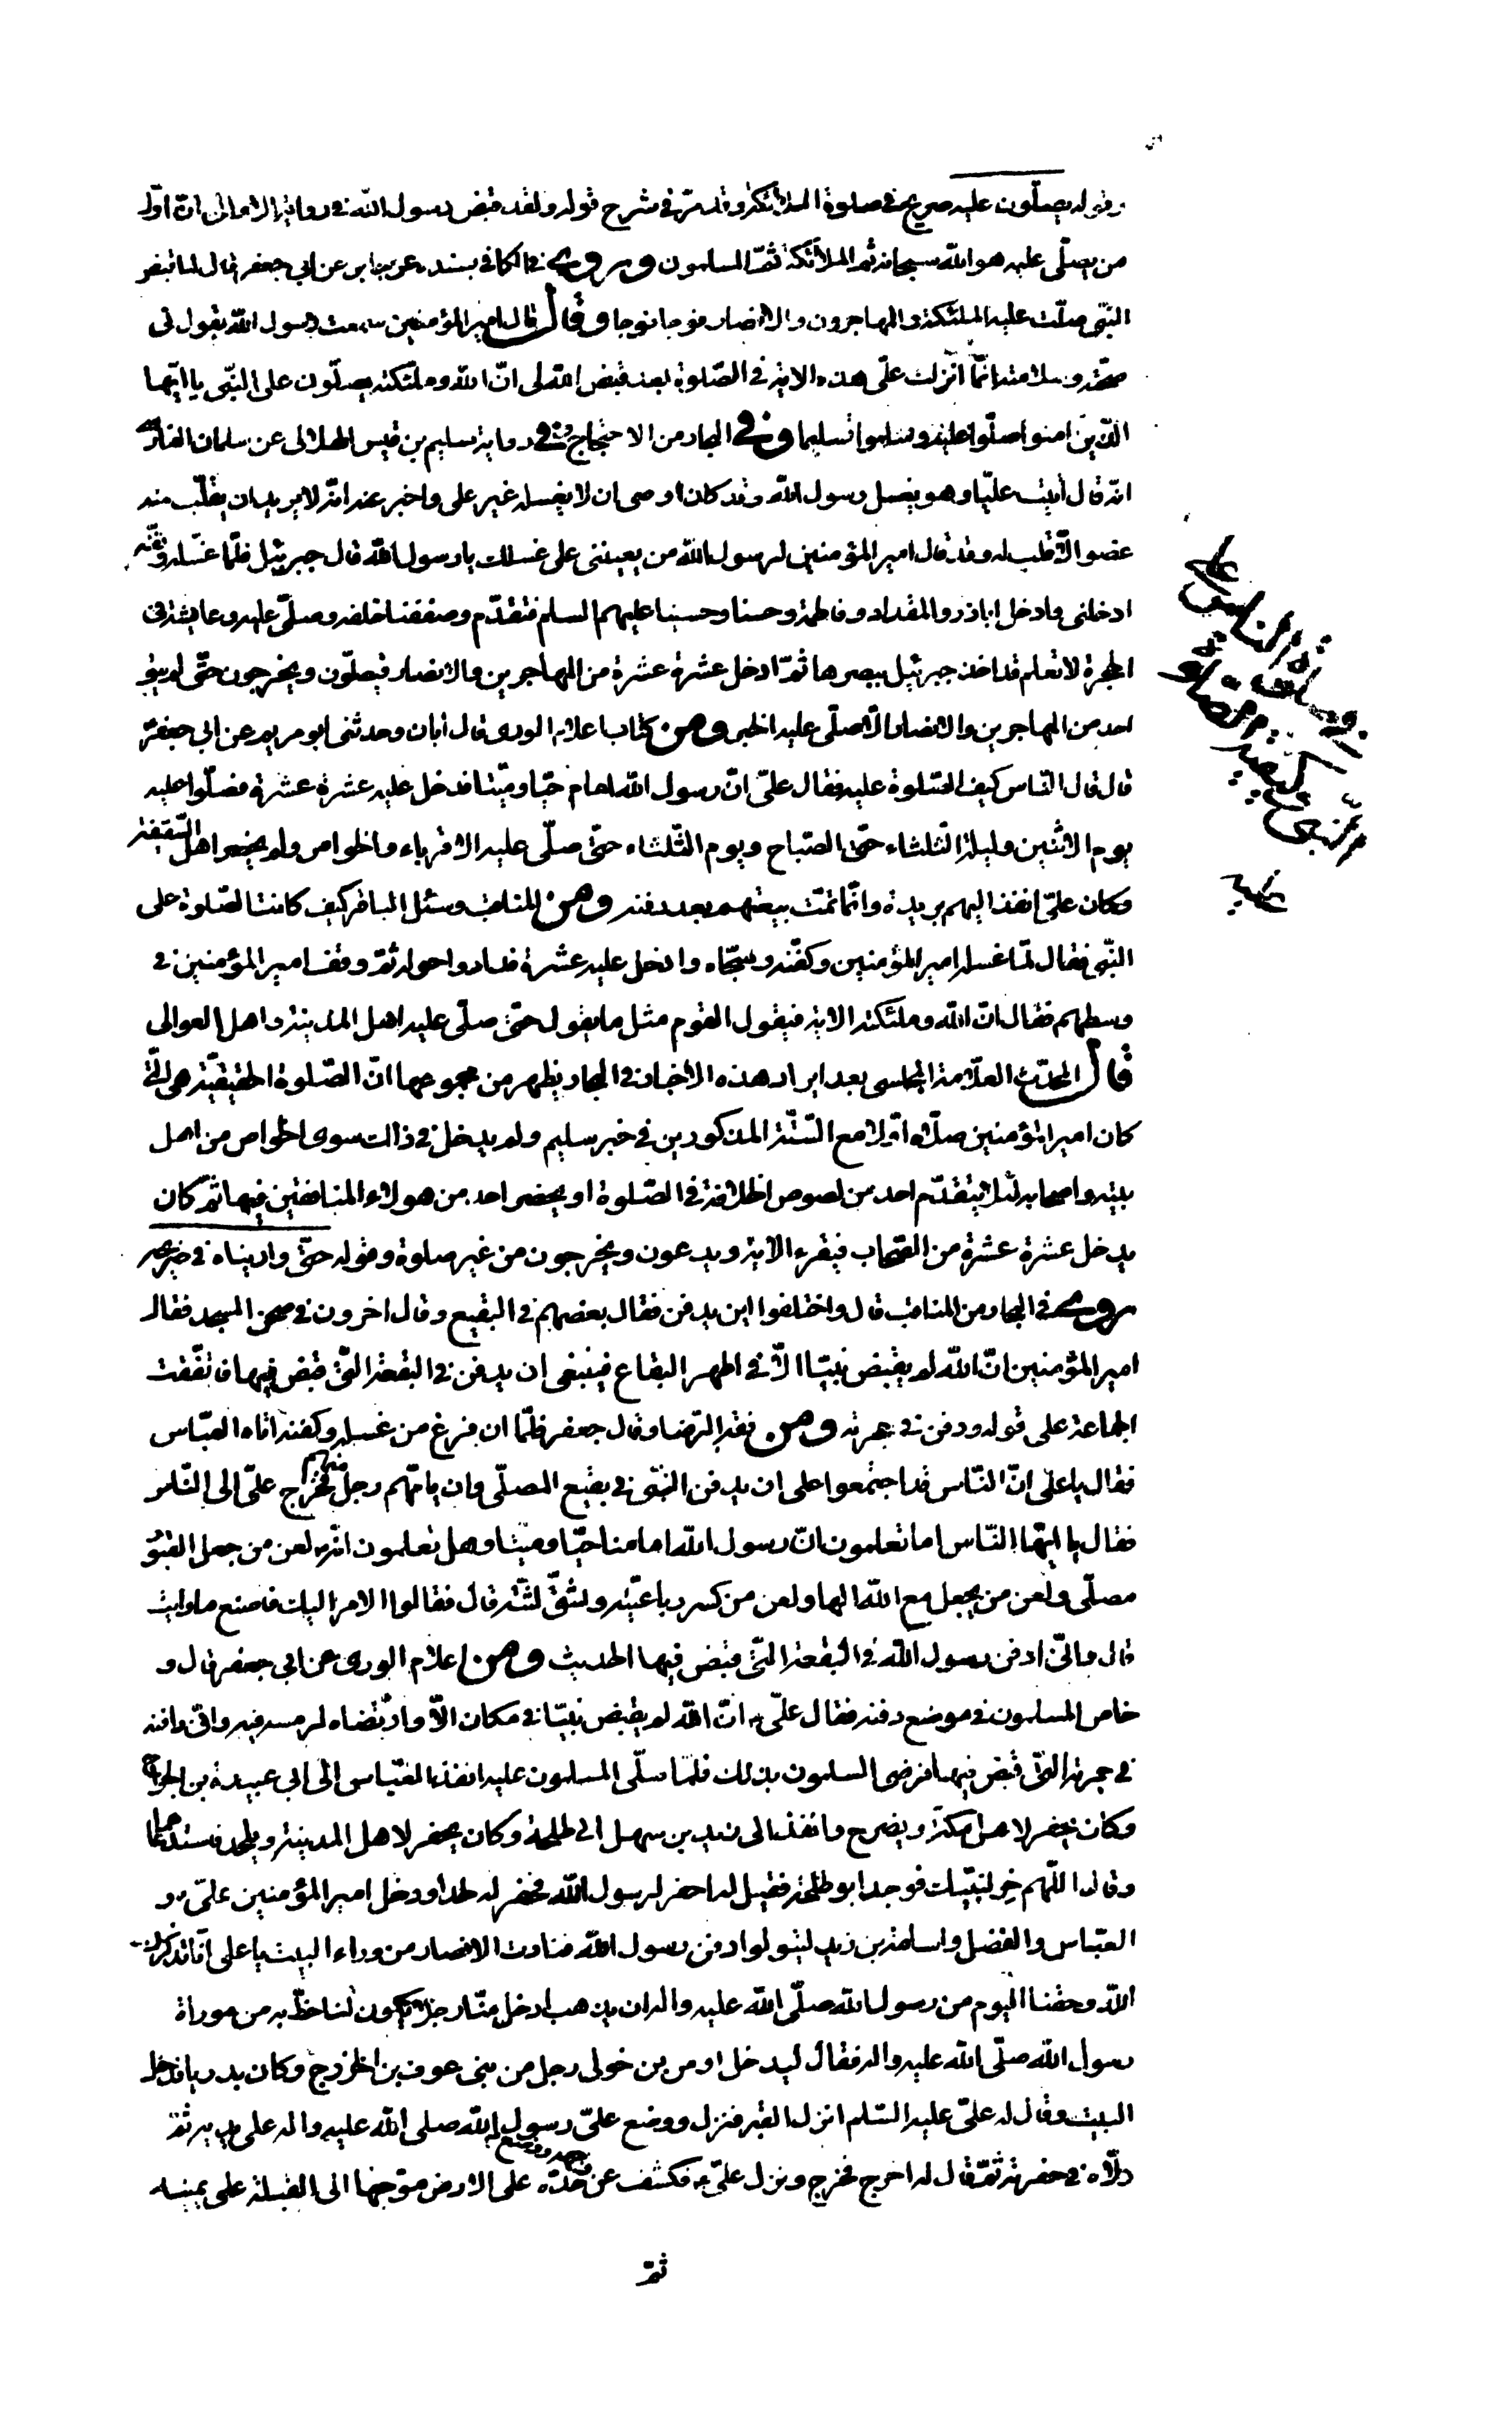 وقوله يصلّون عليه صريح في صلوة الملائكة وقد مرّ في شرح قوله ولقد قبض رسول الله في رواية الامالى ان اوّل
من يصلّى عليه هو الله سبحانه ثم الملائكة ثمّ المسلمون وروى في الكافي بسنده عن جابر عن ابي جعفر قال لما قبض
النبّى صلّت عليه الملئكة والمهاجرون والانصار فوجا فوجا وقال قال امير المؤمنين سمعت رسول الله يقول في
صحّته وسلامته انّما انزلت علىّ هذه الاية في الصّلوة بعد قبض الله لى انّ الله وملئكته يصلّون على النبّى يا ايّها
الّذين امنوا صلّوا عليه وسلموا تسليما وفي البحار من الاحتجاج وفي رواية سليم بن قيس الهلالى عن سلمان الفارسى
انّه قال أتيت عليّا وهو يغسل رسول الله وقد كان اوصى ان لا يغسله غير على واخبر عنه انّه لا يريد ان يقلّب منه
عضوا الّا قلب له وقد قال امير المؤمنين لرسول الله من يعيننى على غسلك يا رسول الله قال جبرئيل فلمّا غسّله وكفّنه
ادخلنى وادخل اباذر والمقداد وفاطمة وحسنا وحسينا عليهم السلم فتقدّم وصففنا خلفه وصلّى عليه وعايشة في
الحجرة لا تعلم قد اخذ جبرئيل ببصرها ثمّ ادخل عشرة عشرة من المهاجرين والانصار فيصلّون ويخرجون حتّى لم يبق
احد من المهاجرين والانصار الّا صلّى عليه الخبر ومن كتاب اعلام الورى قال أبان وحدثنى ابو مريم عن ابي جعفر
قال قال النّاس كيف الصّلوة عليه فقال علىّ انّ رسول الله امام حيّا وميّتا فدخل عليه عشرة عشرة فصلّوا عليه
يوم الاثنين وليلة الثّلثاء حتّى الصّباح ويوم الثّلثاء حتى صلّى عليه الاقرباء والخواص ولم يحضر اهل السّقيفة
وكان علىّ انفذ اليهم بريدة وانّما تمّت بيعتهم بعد دفنه ومن المناقب وسئل الباقر كيف كانت الصّلوة على
النبّى فقال لمّا غسله امير المؤمنين وكفّنه وسجّاه وادخل عليه عشرة فداروا حوله ثمّ وقف امير المؤمنين في
وسطهم فقال انّ الله وملئكته الاية فيقول القوم مثل ما يقول حتّى صلّى عليه اهل المدينة واهل العوالى
قال المحدّث العلّامة المجلسى بعد ايراد هذه الاخبار في البحار يظهر من مجموعها انّ الصّلوة الحقيقيّة هي الّتى
كان امير المؤمنين صلّاها اوّلا مع السّتّة المذكورين في خبر سليم ولم يدخل في ذالك سوى الخواص من اهل
بيته واصحابه لئلا يتقدّم احد من لصوص الخلافة في الصّلوة او يحضر احد من هولاء المنافقين فيها ثمّ كان
يدخل عشرة عشرة من الصّحاب فيقرء الاية ويدعون ويخرجون من غير صلوة وقوله حتّى واريناه في ضريحه
روى في البحار من المناقب قال واختلفوا اين يدفن فقال بعضهم في البقيع وقال اخرون في صحن المسجد فقال
امير المؤمنين انّ الله لم يقبض نبيّا الّا في اطهر البقاع فينبغى ان يدفن في البقعة الّتى قبض فيها فاتّفقت
الجماعة على قوله ودفن في حجرته ومن فقه الرّضا وقال جعفر فلمّا ان فرغ من غسله وكفنه اتاه العبّاس
فقال يا على انّ النّاس قد اجتمعوا على ان يدفن النبّى في بقيع المصلّى وان يامّهم رجل منهم فخرج علىّ الى النّاس
فقال يا ايّها النّاس اما تعلمون انّ رسول الله امامنا حيّا وميّتا وهل تعلمون انّه لعن من جعل القبور
مصلّى ولعن من يجعل مع الله الها ولعن من كسر رباعيّته وشقّ لثّته قال فقالوا الامر اليك فاصنع ما رايت
قال وانّى ادفن رسول الله في البقعة الّتى قبض فيها الحديث ومن اعلام الورى عن ابي جعفر قال و
خاص المسلمون في موضع دفنه فقال علىّ انّ الله لم يقبض نبيّا في مكان الّا وارتضاه لرمسه فيه وانّى دافنه
في حجرته الّتى قبض فيها فرضى المسلمون بذلك فلمّا صلّى المسلمون عليه انفذ العبّاس الى ابي عبيدة بن الجراح
وكان يحفر لاهل مكّة ويضرح وانفذ الى زيد بن سهل ابى طلحة وكان يحفر لاهل المدينة ويلحد فاستدعاهما
وقال اللّهم خر لنبيّك فوجد ابو طلحة فقيل له احفر لرسول الله فحفر له لحدا ودخل امير المؤمنين علىّ و
العبّاس والفضل واسامة بن زيد ليتولوا دفن رسول الله فنادت الانصار من وراء البيت يا على انّا نذكرك
الله وحقنا اليوم من رسول الله صلّى الله عليه واله ان يذهب ادخل منّا رجلا يكون لنا حظّ به من موراة
رسول الله صلّى الله عليه واله فقال ليدخل اوس بن خولى رجل من بنى عوف بن الخزرج وكان بدريا فدخل
البيت وقال له علىّ عليه السّلم انزل القبر فنزل ووضع علىّ رسول الله صلى الله عليه واله على يديه ثمّ
دلّاه في حفرته ثمّ قال له اخرج فخرج ونزل علىّ فكشف عن وجهه ووضع خدّه على الارض موجّها الى القبلة على يمينه
ثمّ